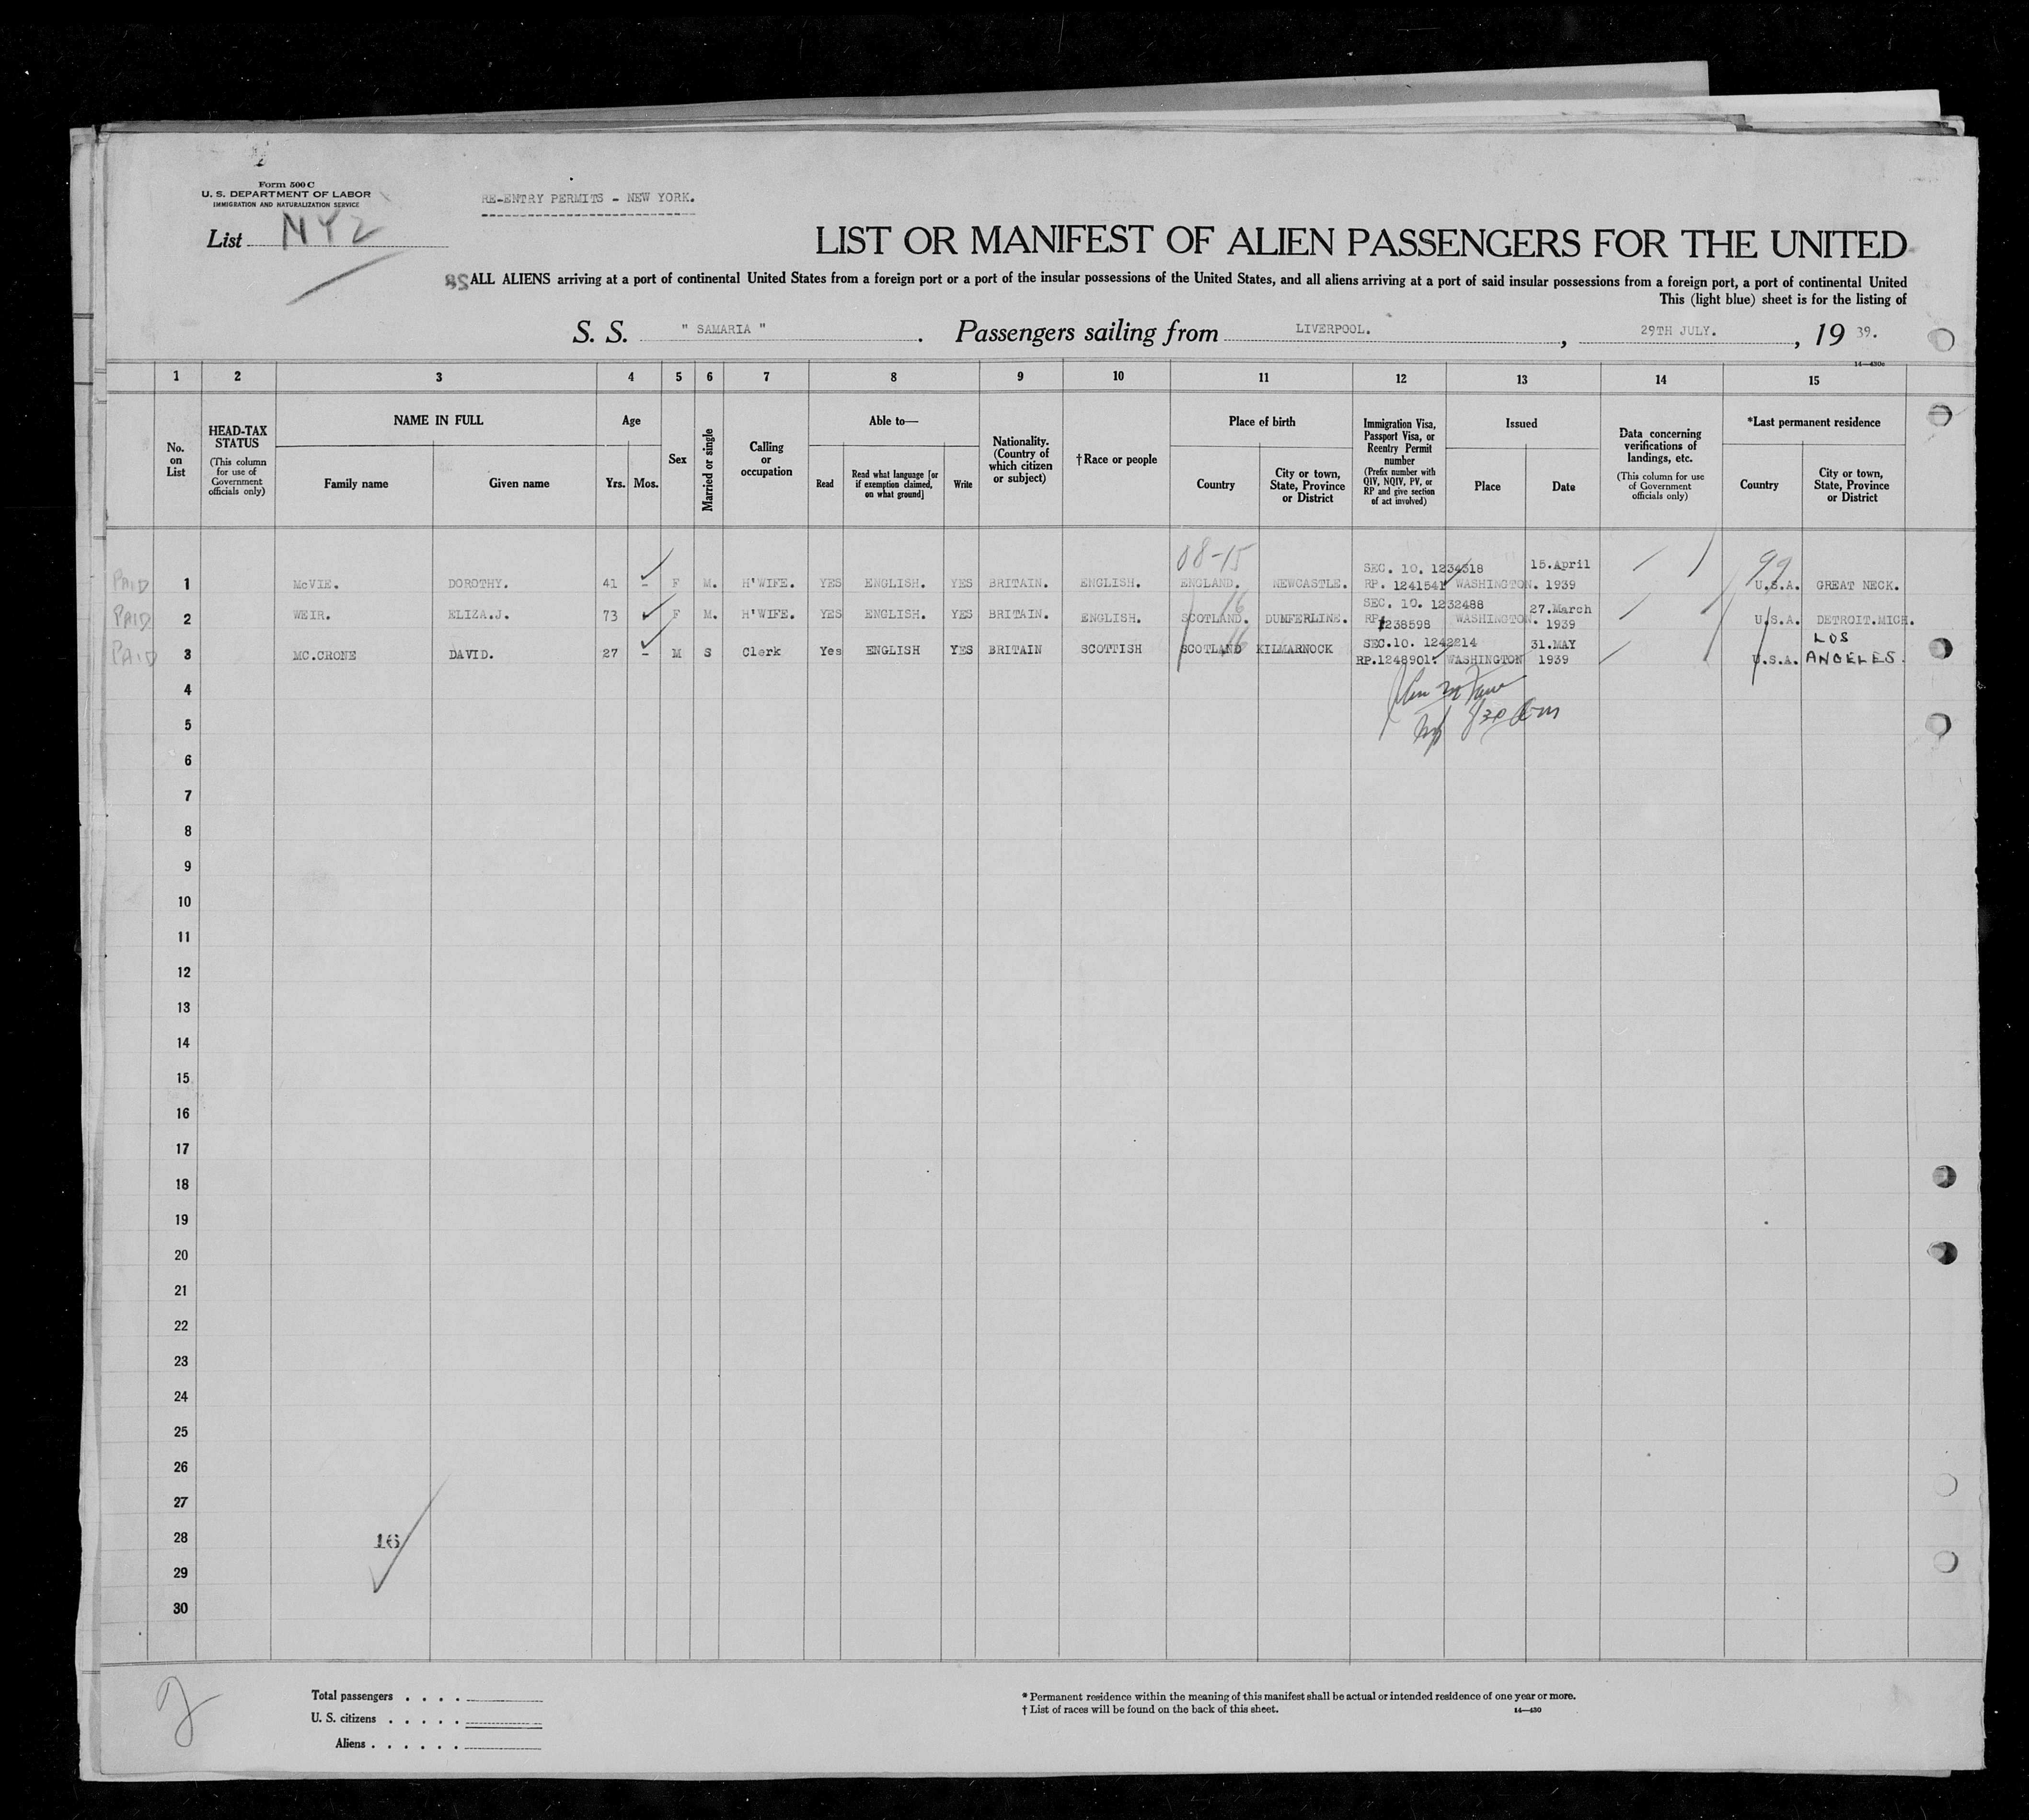 Form 500 C
U. S. DEPARTMENT OF LABOR
IMMIGRATION AND NATURALIZATION SERVICE
RE-ENTRY PERMITS - NEW YORK.
List NY2
LIST OR MANIFEST OF ALIEN PASSENGERS FOR THE UNITED
ALL ALIENS arriving at a port of continental United States from a foreign port or a port of the insular possessions of the United States, and all aliens arriving at a port of said insular possessions from a foreign port, a port of continental United
This (light blue) sheet is for the listing of
S. S. " SAMARIA " . Passengers sailing from LIVERPOOL. , 29TH JULY. , 19 39.
14—430c
1 2 3 4 5 6 7 8 9 10 11 12 13 14 15
No. on List
HEAD-TAX STATUS
(This column for use of Government officials only)
NAME IN FULL
Family name
Given name
Age
Yrs. Mos.
Sex
Married or single
Calling or occupation
Able to—
Read
Read what language [or if exemption claimed, on what ground]
Write
Nationality. (Country of which citizen or subject)
† Race or people
Place of birth
Country
City or town, State, Province or District
Immigration Visa, Passport Visa, or Reentry Permit number
(Prefix number with QIV, NQIV, PV, or RP and give section of act involved)
Issued
Place
Date
Data concerning verifications of landings, etc.
(This column for use of Government officials only)
*Last permanent residence
Country
City or town, State, Province or District
08-15 99
SEC. 10. 1234318 15.April
PAID 1 McVIE. DOROTHY. 41 - F M. H'WIFE. YES ENGLISH. YES BRITAIN. ENGLISH. ENGLAND. NEWCASTLE. RP. 1241541 WASHINGTON. 1939 U.S.A. GREAT NECK.
16 SEC. 10. 1232488 27.March
PAID 2 WEIR. ELIZA.J. 73 F M. H'WIFE. YES ENGLISH. YES BRITAIN. ENGLISH. SCOTLAND. DUMFERLINE. RP. 1238598 WASHINGTON. 1939 U.S.A. DETROIT.MICH.
16 SEC.10. 1242214 31.MAY LOS
PAID 3 MC.CRONE DAVID. 27 - M S Clerk Yes ENGLISH YES BRITAIN SCOTTISH SCOTLAND KILMARNOCK RP.1248901. WASHINGTON 1939 U.S.A. ANGELES.
4
5
6
7
8
9
10
11
12
13
14
15
16
17
18
19
20
21
22
23
24
25
26
27
28
16
29
30
2
Total passengers . . . .
U. S. citizens . . . . .
Aliens . . . . . .
* Permanent residence within the meaning of this manifest shall be actual or intended residence of one year or more.
† List of races will be found on the back of this sheet.
14—430